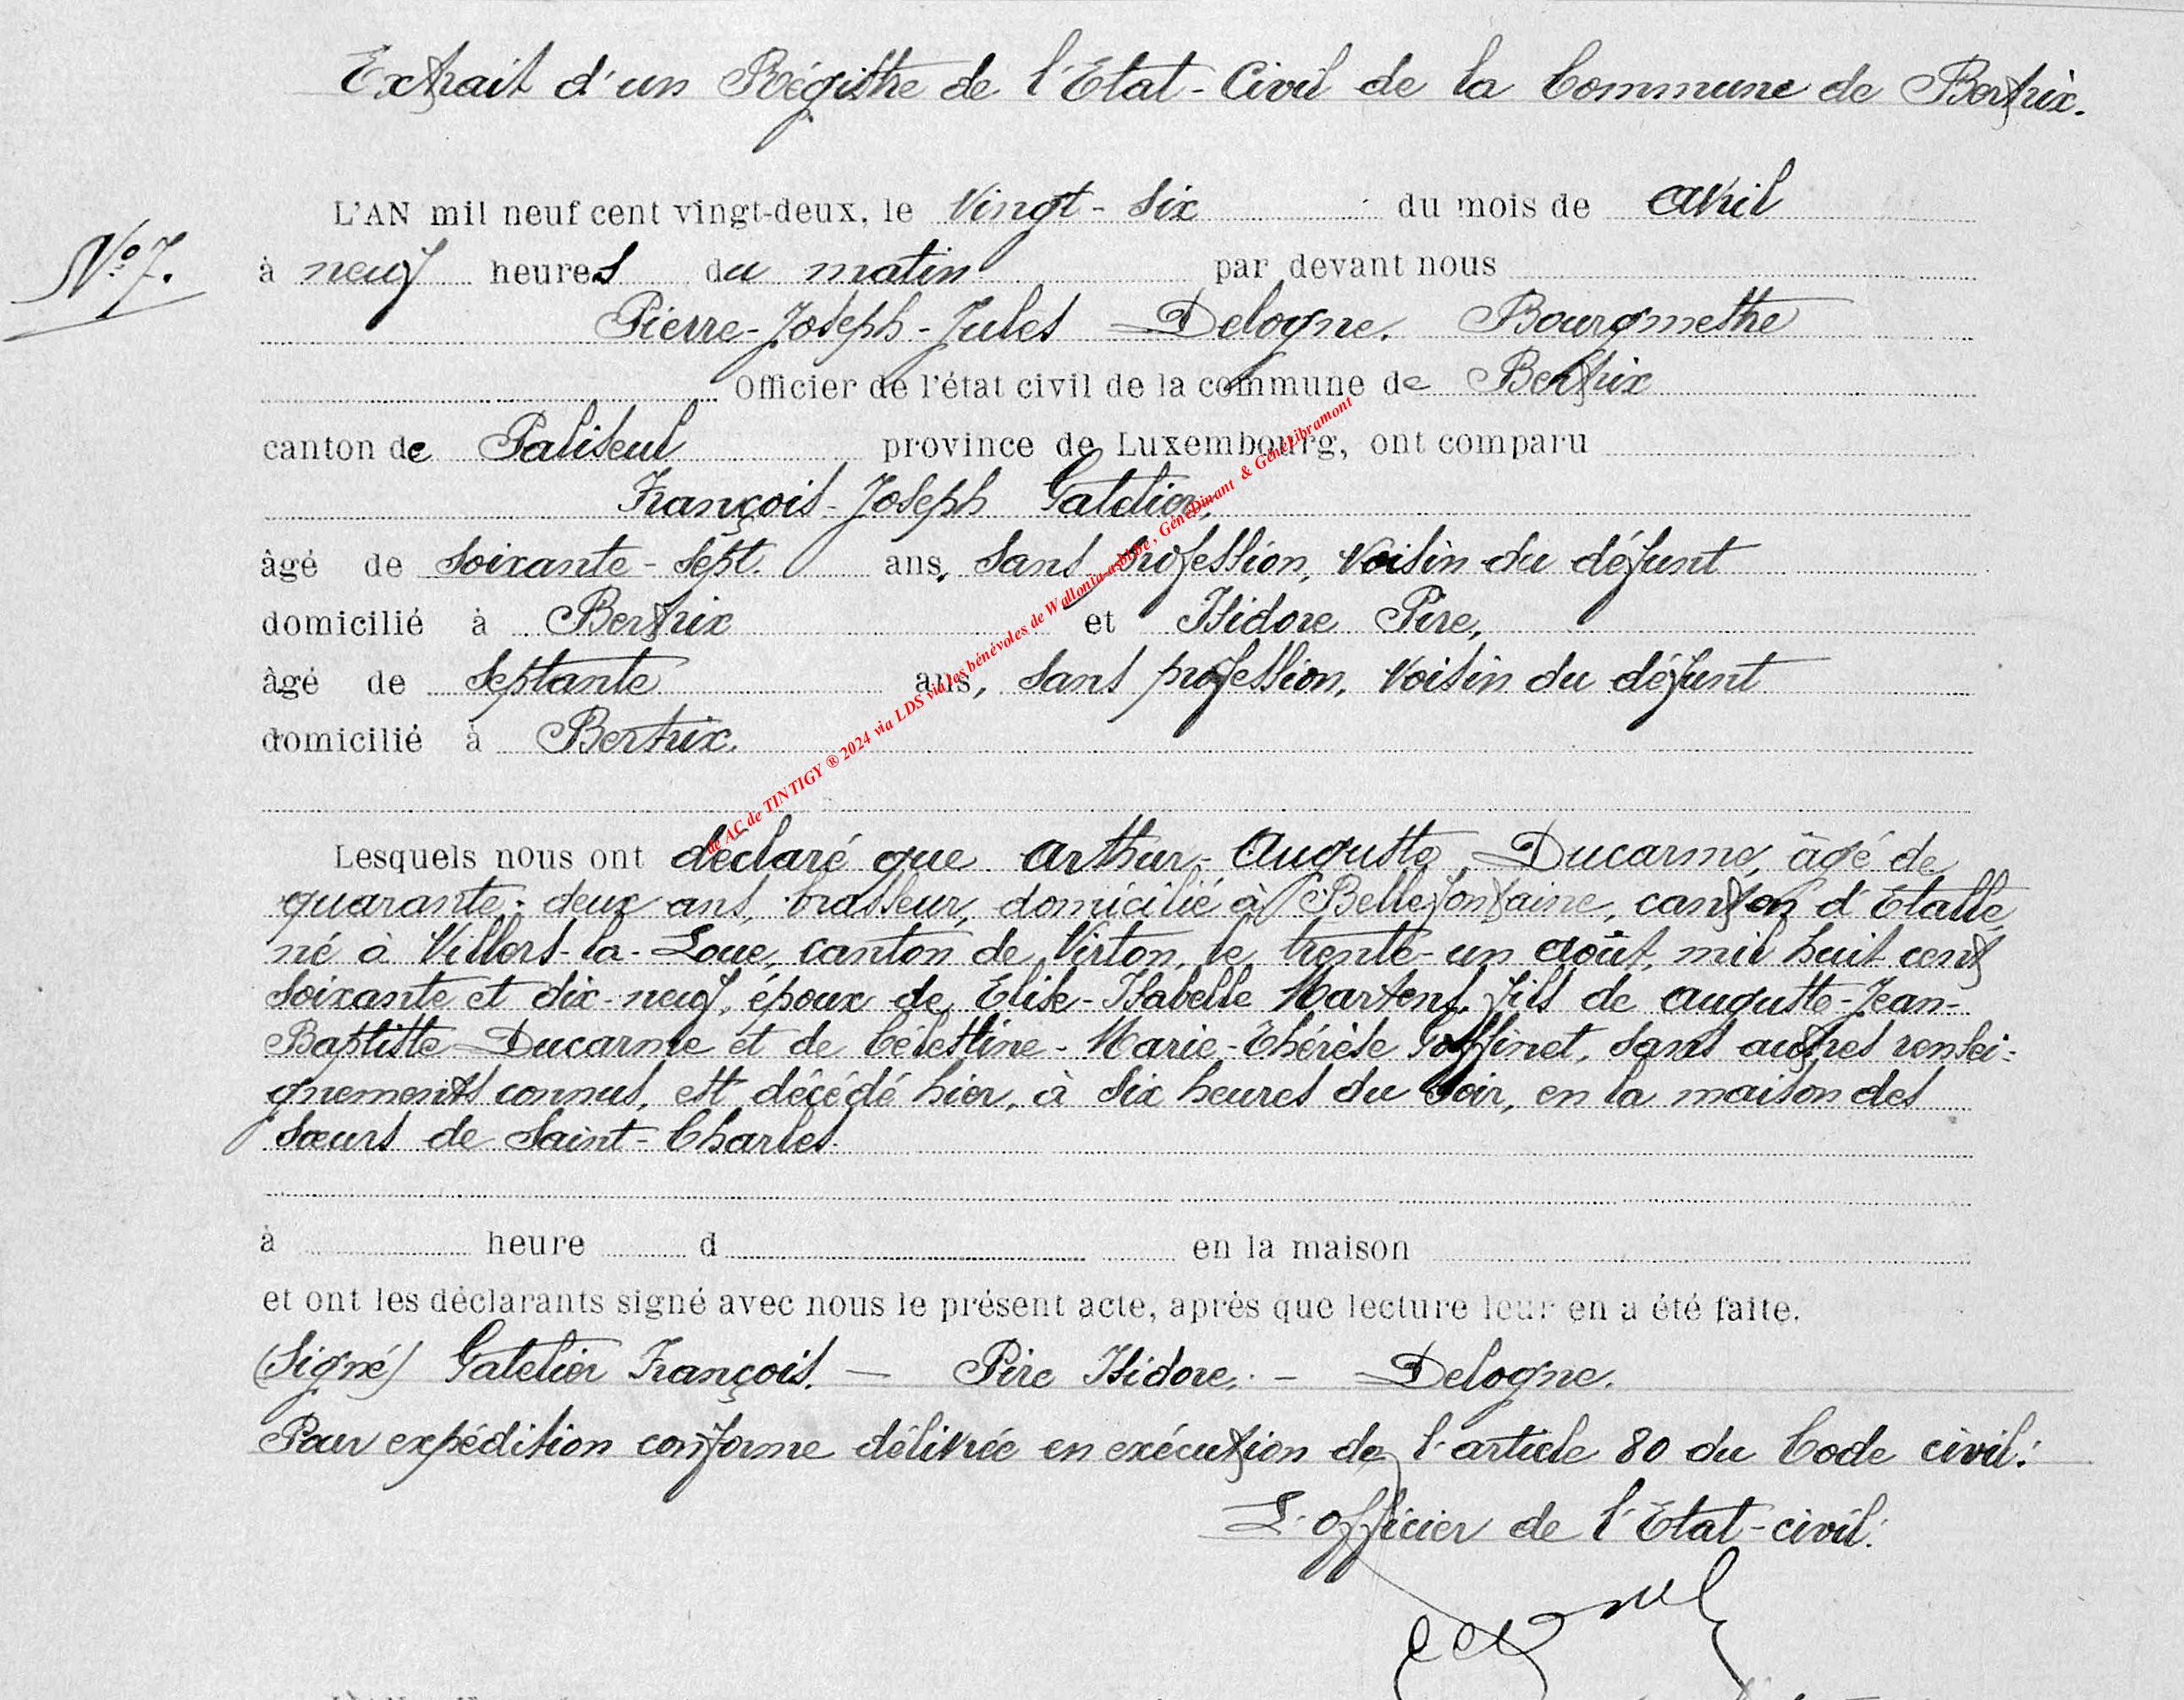 Extrait d'un Régistre de l'Etat-Civil de la Commune de Bertrix.
L'AN mil neuf cent vingt-deux, le Vingt-six du mois de avril
N° 7.
à neuf heures du matin par devant nous
Pierre-Joseph-Jules Delogne, Bourgmestre
Officier de l'état civil de la commune de Bertrix
canton de Paliseul province de Luxembourg, ont comparu
François-Joseph Gatelier,
âgé de soixante-sept ans, sans profession, voisin du défunt
domicilié à Bertrix et Isidore Pire,
âgé de septante ans, sans profession, voisin du défunt
domicilié à Bertrix.
de AC de TINTIGY ® 2024 via LDS via les bénévoles de Wallonia-asbl.be, GénéDinant & GénéLibramont
Lesquels nous ont déclaré que Arthur-Auguste Ducarme, âgé de
quarante-deux ans, brasseur, domicilié à Bellefontaine, canton d'Etalle,
né à Villers-la-Loue, canton de Virton, le trente-un août, mil huit cent
soixante et dix-neuf, époux de Elise-Isabelle Martens, fils de Auguste-Jean-
Baptiste Ducarme et de Célestine-Marie-Thérèse Goffinet, sans autres rensei-
gnements connus, est décédé hier, à six heures du soir, en la maison des
sœurs de Saint-Charles.
à heure d en la maison
et ont les déclarants signé avec nous le présent acte, après que lecture leur en a été faite.
(Signé) Gatelier François. — Pire Isidore. - Delogne.
Pour expédition conforme délivrée en exécution de l'article 80 du Code civil:
L'officier de l'Etat-civil: